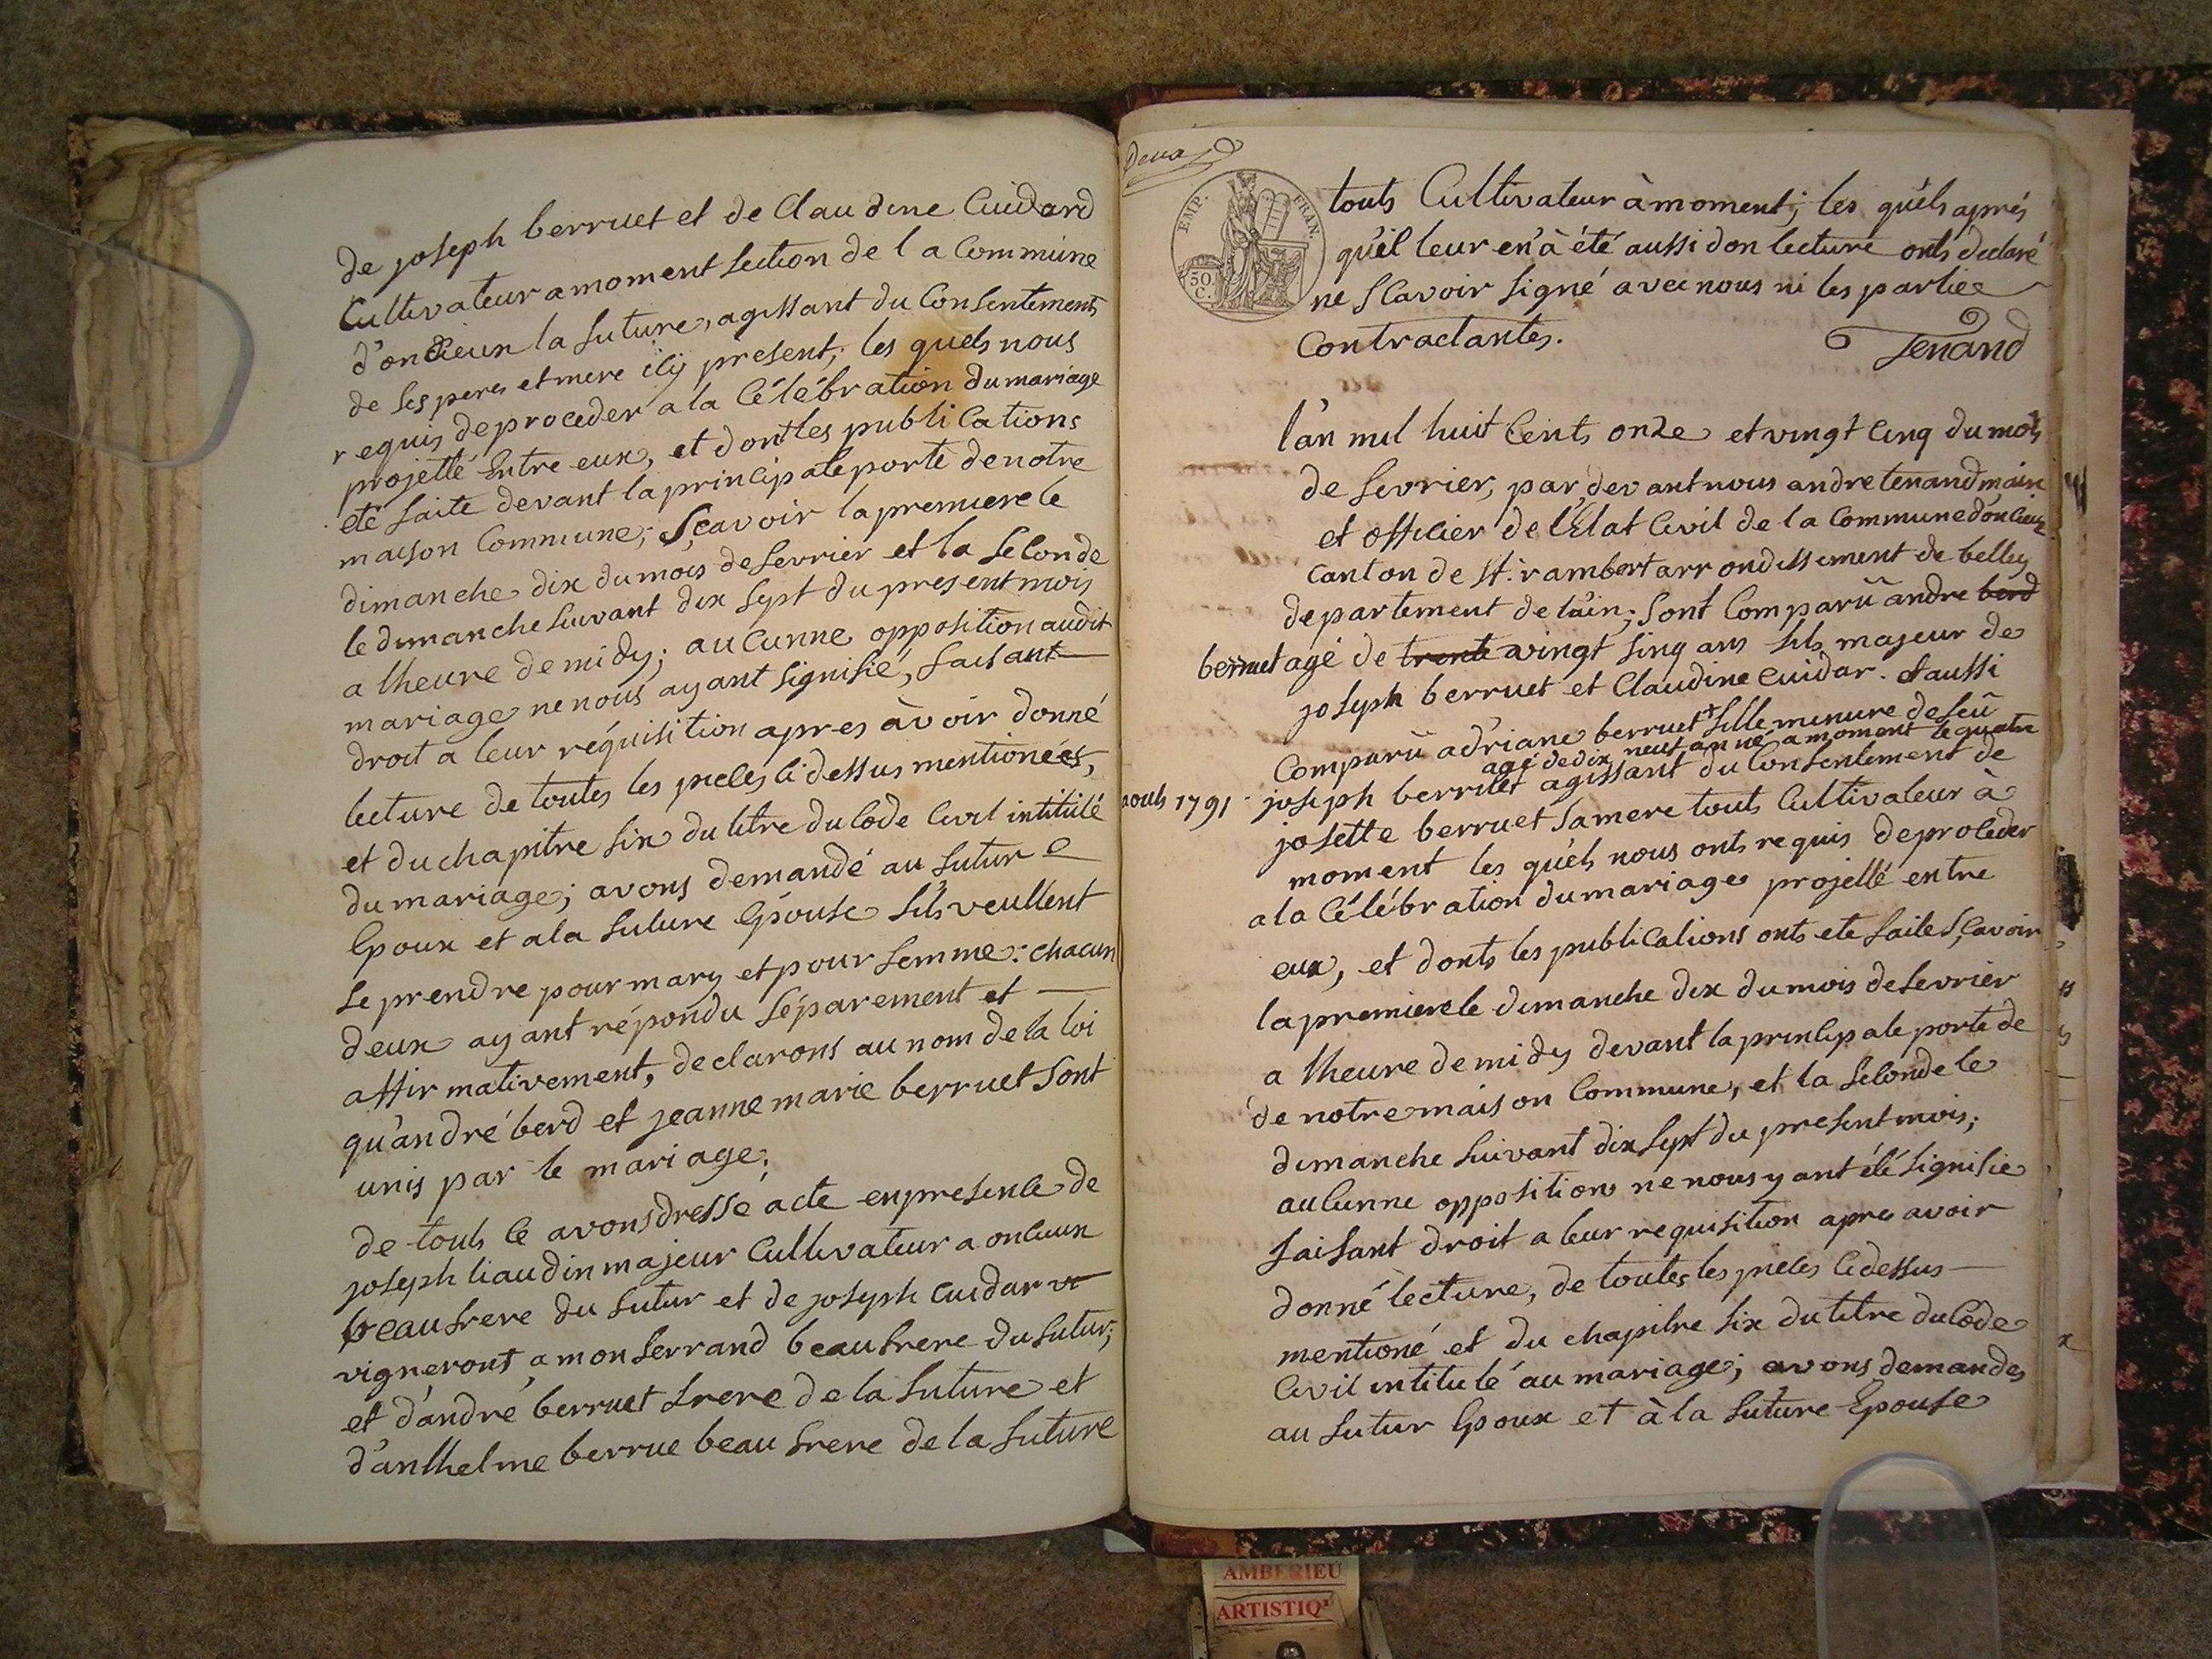 de joseph berruet et de Claudine Cuidard
Cultivateur a moment section de la Commune
d'oncieux la future, agissant du Consentement
de ses peres et mere icy present; les quels nous
requis de proceder a la Célébration du mariage
projetté entre eux, et dont les publications
eté faite devant la principale porte de notre
maison Commune; Sçavoir la premiere le
dimanche dix du mois de fevrier et la seconde
le dimanche suivant dix sept du present mois
a lheure de midy; aucunne opposition audit
mariage ne nous ayant signifié, faisant
droit a leur réquisition apres àvoir donné
lecture de toutes les pieces ci dessus mentionées,
et du chapitre six du titre du Code Civil intitulé
du mariage; avons demandé au futur e
Epoux et a la future Epouse s'ils veullent
se prendre pour mary et pour femme: chacun
deux ayant répondu séparement et
affirmativement, declarons au nom de la loi
qu'andré berd et jeanne marie berruet sont
unis par le mariage;
de touts ce avons dressé acte en presence de
joseph liaudin majeur Cultivateur a oncieux
beaufrere du futur et de joseph Cuidar
vigneront a monferrand beaufrere du futur;
et d'andré berruet frere de la future et
d'anthelme berrue beau frere de la future
deux
EMP. FRAN.
50 C.
touts Cultivateur à moment; les quéls aprés
qu'il leur en à été aussi don lecture onts déclaré
ne Scavoir signé avec nous ni les parties
Contractantes.
Tenand
l'an mil huit Cents onze et vingt cinq du mois
de fevrier, par devant nous andre tenand maire
et officier de l'Etat Civil de la Commune d'oncieux
Canton de st. rambert arrondissement de belley
departement de l'ain; sont Comparû andre berd
berruet agé de trente vingt sinq ans fils majeur de
joseph berruet et Claudine Cuidar. et aussi
Comparû adriane berruet + fille mineure de feû
agé de dix neuf an né a moment le quatre
aouts 1791 joseph berruet agissant du Consentement de
josette berruet sa mere touts Cultivateur à
moment les quéls nous onts requis de proceder
a la Célébration du mariage projetté entre
eux, et donts les publications onts ete faite Sçavoir
la premiere le dimanche dix du mois de fevrier
a lheure de midy devant la principale porte de
de notre maison Commune, et la seconde le
dimanche suivant dix sept du present mois;
aucunne opposition ne nous yant été signifie
faisant droit a leur requisition apres avoir
donné lecture, de toutes les pieces ci dessus
mentioné et du chapitre six du titre du Code
Civil intitulé au mariage; avons demandes
au futur Epoux et à la future Epouse
AMBERIEU
ARTISTIQ